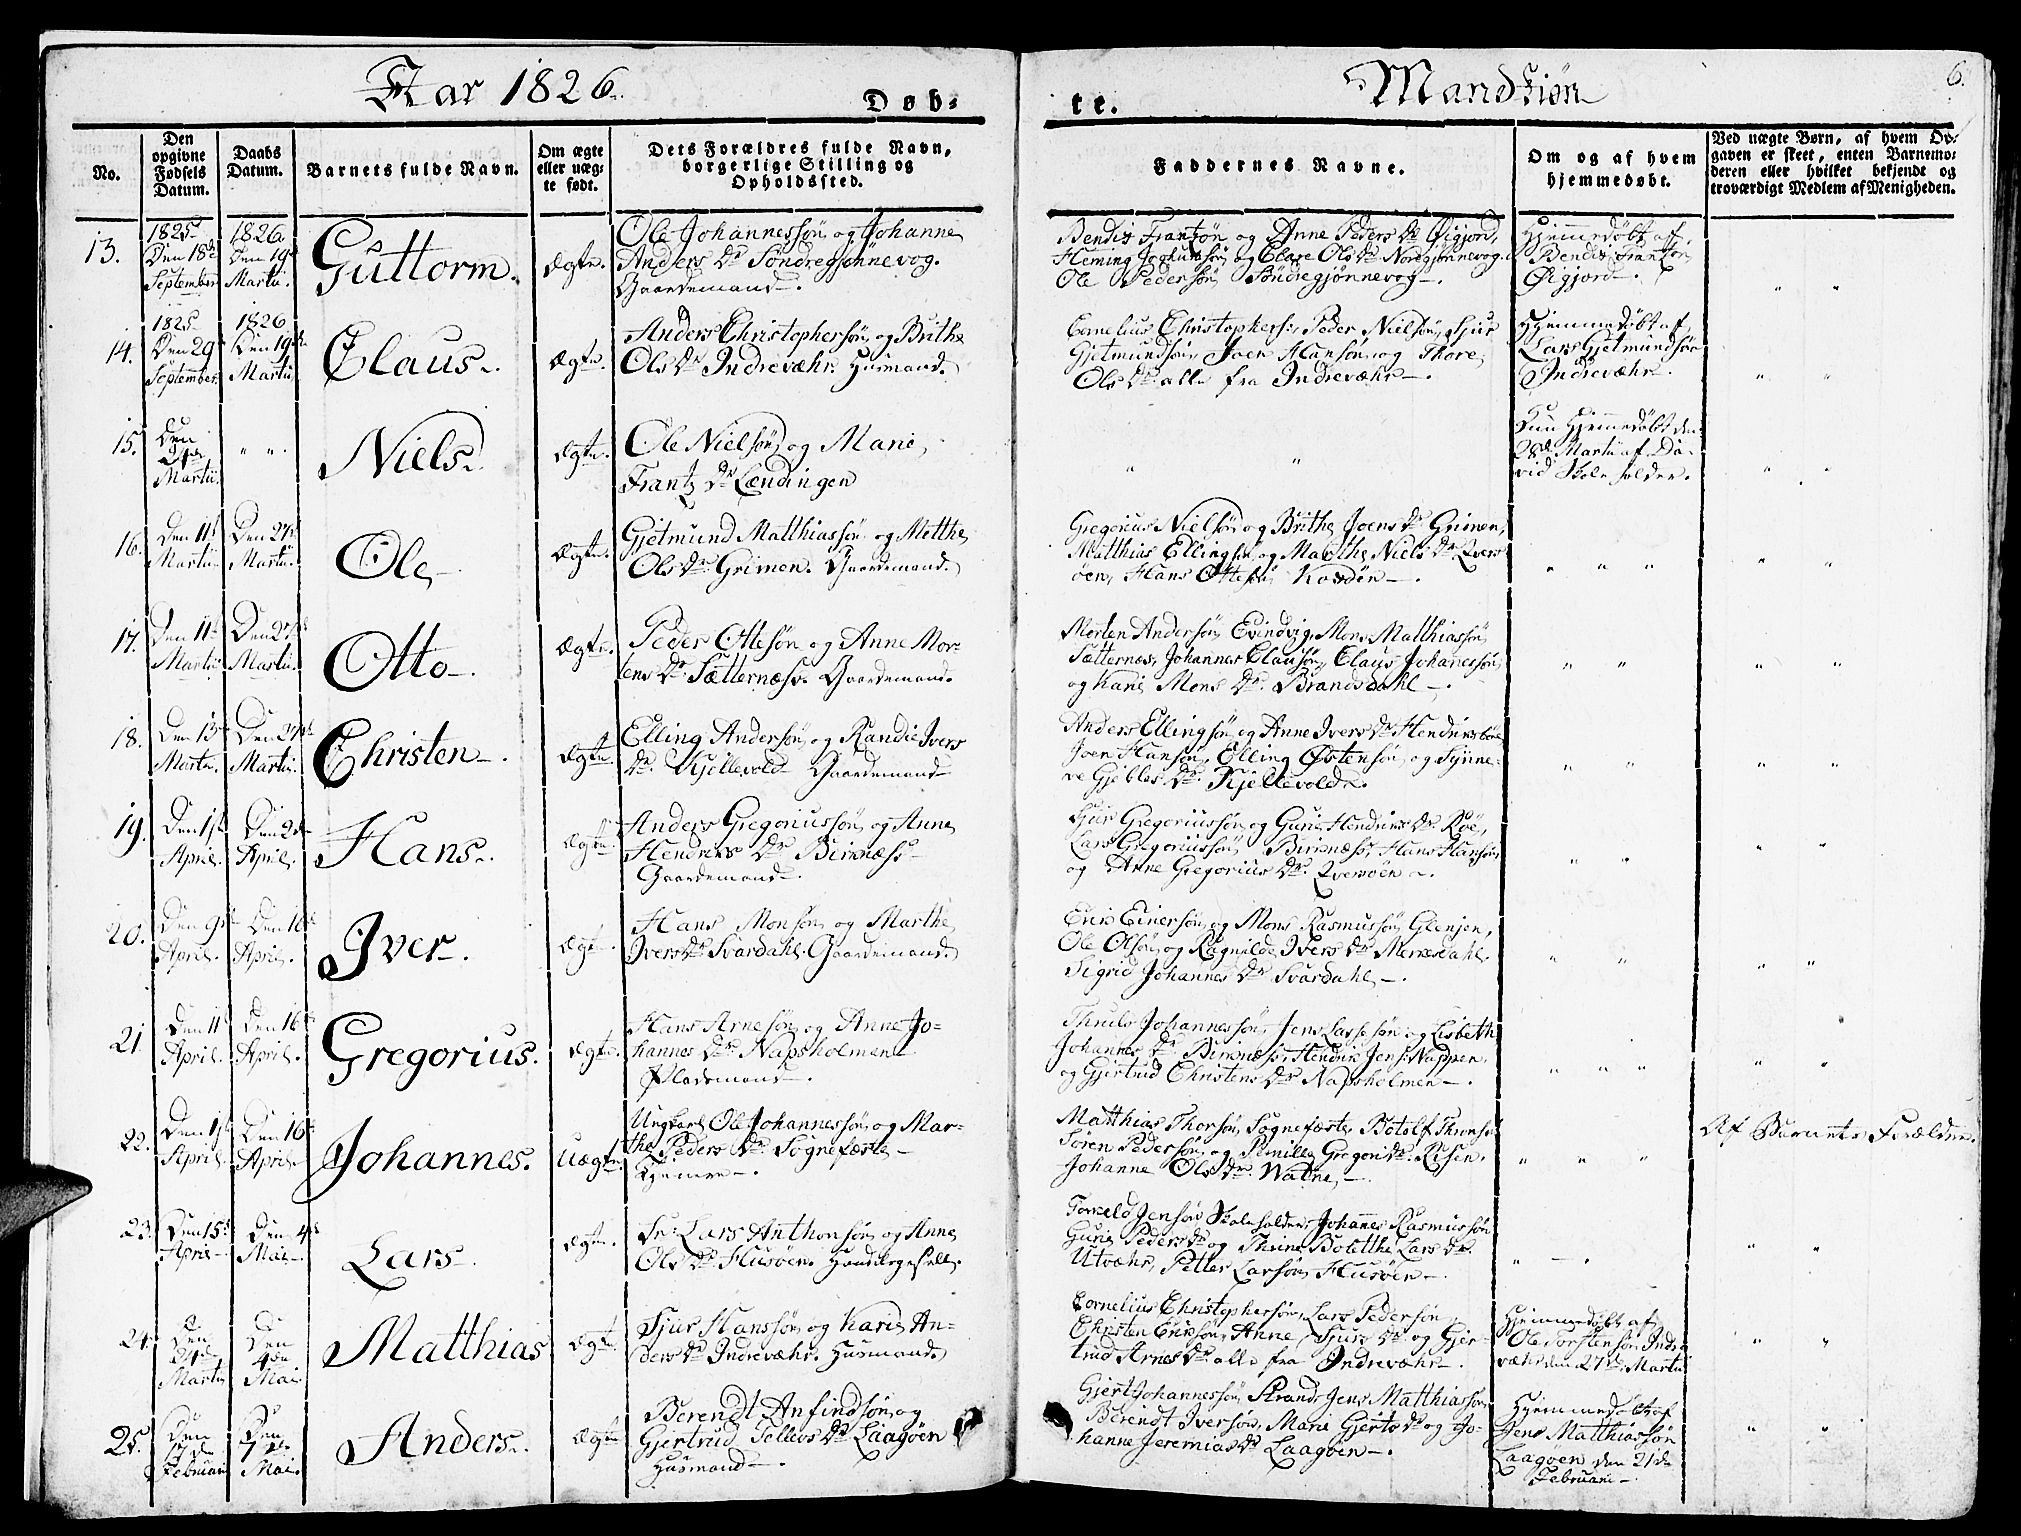 Aar 1826.
Døb-
te.
Mandkiøn
6.
No.
Den opgivne Fødsels Datum.
Daabs Datum.
Barnets fulde Navn.
Om ægte eller uægte født.
Dets Forældres fulde Navn, borgerlige Stilling og Opholdssted.
Faddernes Navne.
Om og af hvem hjemmedøbt.
Ved uægte Børn, af hvem Opgaven er skeet, enten Barnemoderen eller hvilket bekjendt og troværdigt Medlem af Menigheden.
13.
1825 Den 18de September
1826 Den 19de Martii.
Guttorm.
Ægte.
Ole Johannessøn og Johanne
Anders Dr. Søndregjønnevog.
Gaardemand.
Bendix Frantzøn og Anne Peders Dr. Øigjord,
Fleming og Clare Ols Dr. Nordgjønnevog.
Ole Pedersøn Søndregjønnevog.
Hjemmedøbt af
Bendix Frantzøn
Øigjord.
14.
1825 Den 29de September
1826 Den 19de Martii
Claus.
Ægte.
Anders Christophersøn og Brithe
Ols Dr. Indrevæhr. Husmand.
Cornelius Christophers:, Peder Nielsøn, Sjur
Gjetmundsøn, Joen Hansøn og Thore
Ols Dr. alle fra Indrevæhr.
Hjemmedøbt af
Lars Gjetmundsøn
Indrevæhr.
15.
Den 24de Martii
" "
Niels.
Ægte.
Ole Nielsøn og Marie
Frantz Dr. Lændingen
" "
Kun Hjemmedøbt den
28de Martii af Da-
vid Skoleholder.
16.
Den 11te Martii
Den 27de Martii.
Ole
Ægte.
Gjetmund Matthiassøn og Metthe
Ols Dr. Grimen. Gaardemand.
Gregorius Nielsøn og Brithe Joens Dr. Grimen,
Matthias Ellingsøn og Marthe Niels Dr. Qvers-
øen, Hans Ottesøn
17.
Den 11te Martii
Den 27de Martii.
Otto.
Ægte.
Peder Ottesøn og Anne Mor-
tens Dr. Sætternæss. Gaardemand.
Morten Andersøn Evindvig, Mons Matthiassøn
Sætternæs, Johannes Clausøn, Claus Johannessøn
og Kari Mons Dr. Brandsdahl.
18.
Den 13de Martii.
Den 27de Martii.
Christen.
Ægte.
Elling Andersøn og Randie Ivers
Dr. Kjellevold Gaardemand
Anders Ellingsøn og Anne Ivers Dr.
Joen Hansøn, Elling Østensøn og Synne-
ve Gjebles Dr. Kjellevolden.
19.
Den 1ste April.
Den 2den April.
Hans.
Ægte.
Anders Gregoriussøn og Anne
Hendrics Dr. Birknæss
Gaardemand.
Sjur Gregoriussøn og Guri Hendrics Dr. Røe,
Lars Gregoriussøn Birknæss, Hans Hansøn
og Anne Gregorius Dr. Qversøen.
20.
Den 9de April.
Den 16de April.
Iver.
Ægte.
Hans Monsøn og Marthe
Ivers Dr. Svardahl. Gaardemand.
Eric Einersøn og Mons Rasmussøn Glenjen,
Ole Olsøn og Ragnilde Ivers Dr. Merkesdahl.
Sigrid Johannes Dr. Svardahl.
21.
Den 11te April.
Den 16de April.
Gregorius.
Ægte.
Hans Arnesøn og Anne Jo-
hannes Dr. Napsholmen
Pladsmand.
Thruls Johannessøn, Jens Lassesøn og Lisbeth
Johannes Dr. Birknæss, Hendric Jens: Nappen,
og Gjertrud Christens Dr. Napsholmen.
22.
Den 1ste April.
Den 16de April.
Johannes.
Uægte.
Ungkarl Ole Johannessøn og Mar-
the Peders Dr. Sognefæste
Matthias Thorsøn Sognefæste, Botolf
Søren Pedersøn og Pernille Gregori Dr. Risen.
Johanne Ols Dr. Watne.
Af Barnets Forældre.
23.
Den 15de April
Den 4de Mai
Lars.
Ægte.
Sr: Lars Anthonsøn og Anne
Ols Dr. Husøen. Handelsgesell.
Torkeld Jensøn Skoleholder, Johannes Rasmussøn
Guri Peders Dr. og Thrine Bolette Lars Dr.
Utvæhr, Petter Larsøn, Husøen.
24.
Den 24de Martii
Den 4de Mai
Matthias
Ægte.
Sjur Hanssøn og Kari An-
ders Dr. Indrevæhr. Husmand.
Cornelius Christophersøn, Lars Pedersøn
Christen Ericsøn, Anne Sjurs Dr. og Gjer-
trud Arnes Dr. alle fra Indrevæhr.
Hjemmedøbt af
Ole Torstensøn Indre
væhr den 27de Martii
25.
Den 17de Februarii
Den 7de Mai.
Anders.
Ægte
Berendt Anfindsøn og
Gjertrud Tollevs Dr. Laagøen
Husmand.
Gjert Johannessøn Strand, Jens Matthiassøn
Berendt Iversøn, Mari Gjerts Dr. og Jo-
hanne Jeremias Dr. Laagøen.
Hjemmedøbt af
Jens Matthiassøn
Laagøen den 21de
Februarii.